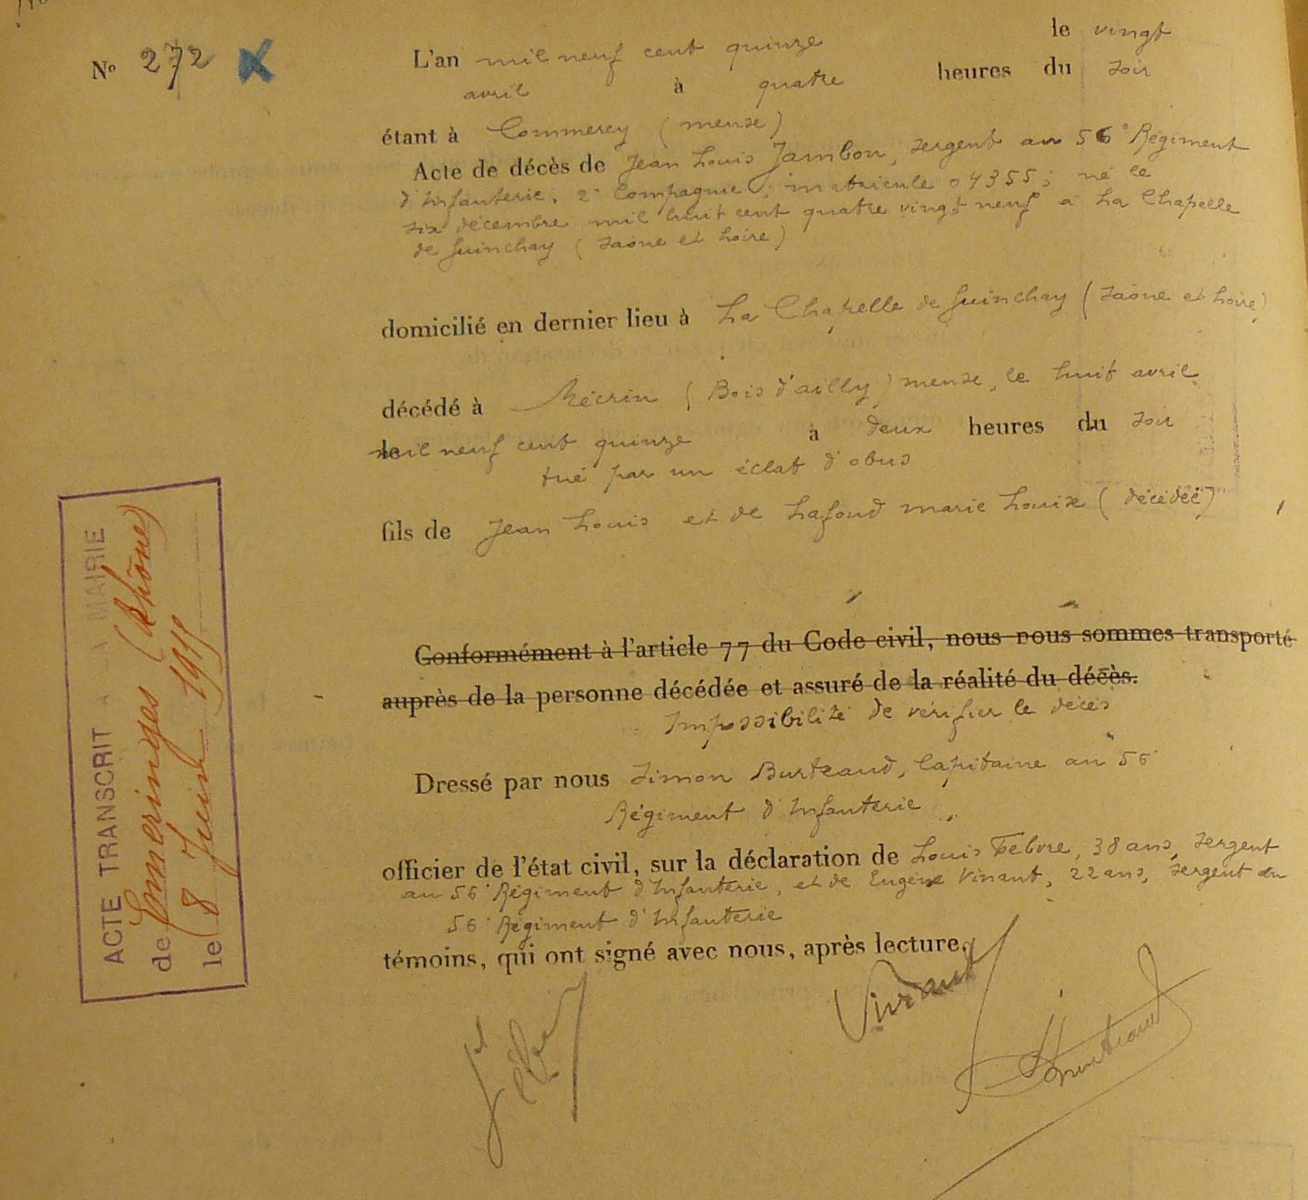 N° 272
L'an mil neuf cent quinze le vingt
avril à quatre heures du soir
étant à Commercy (meuse)
Acte de décès de Jean Louis Jambon, sergent au 56e Régiment
d'Infanterie, 2e Compagnie; matricule 04355; né le
six décembre mil huit cent quatre vingt neuf à La Chapelle
de Guinchay (Saône et Loire)
domicilié en dernier lieu à La Chapelle de Guinchay (Saône et Loire)
décédé à Mécrin (Bois d'ailly) meuse, le huit avril
mil neuf cent quinze à deux heures du soir
tué par un éclat d'obus
fils de Jean Louis et de Lafond marie Louise (décédée)
Conformément à l'article 77 du Code civil, nous nous sommes transporté
auprès de la personne décédée et assuré de la réalité du décès.
Impossibilité de vérifier le décès
Dressé par nous Simon Burtraud, Capitaine au 56e
Régiment d'Infanterie
officier de l'état civil, sur la déclaration de Louis Febvre, 38 ans, sergent
au 56e Régiment d'Infanterie, et de Eugène Vinant, 22 ans, sergent au
56e Régiment d'Infanterie
témoins, qui ont signé avec nous, après lecture.
ACTE TRANSCRIT A LA MAIRIE
de Emeringes (Rhône)
le 8 Juin 1915